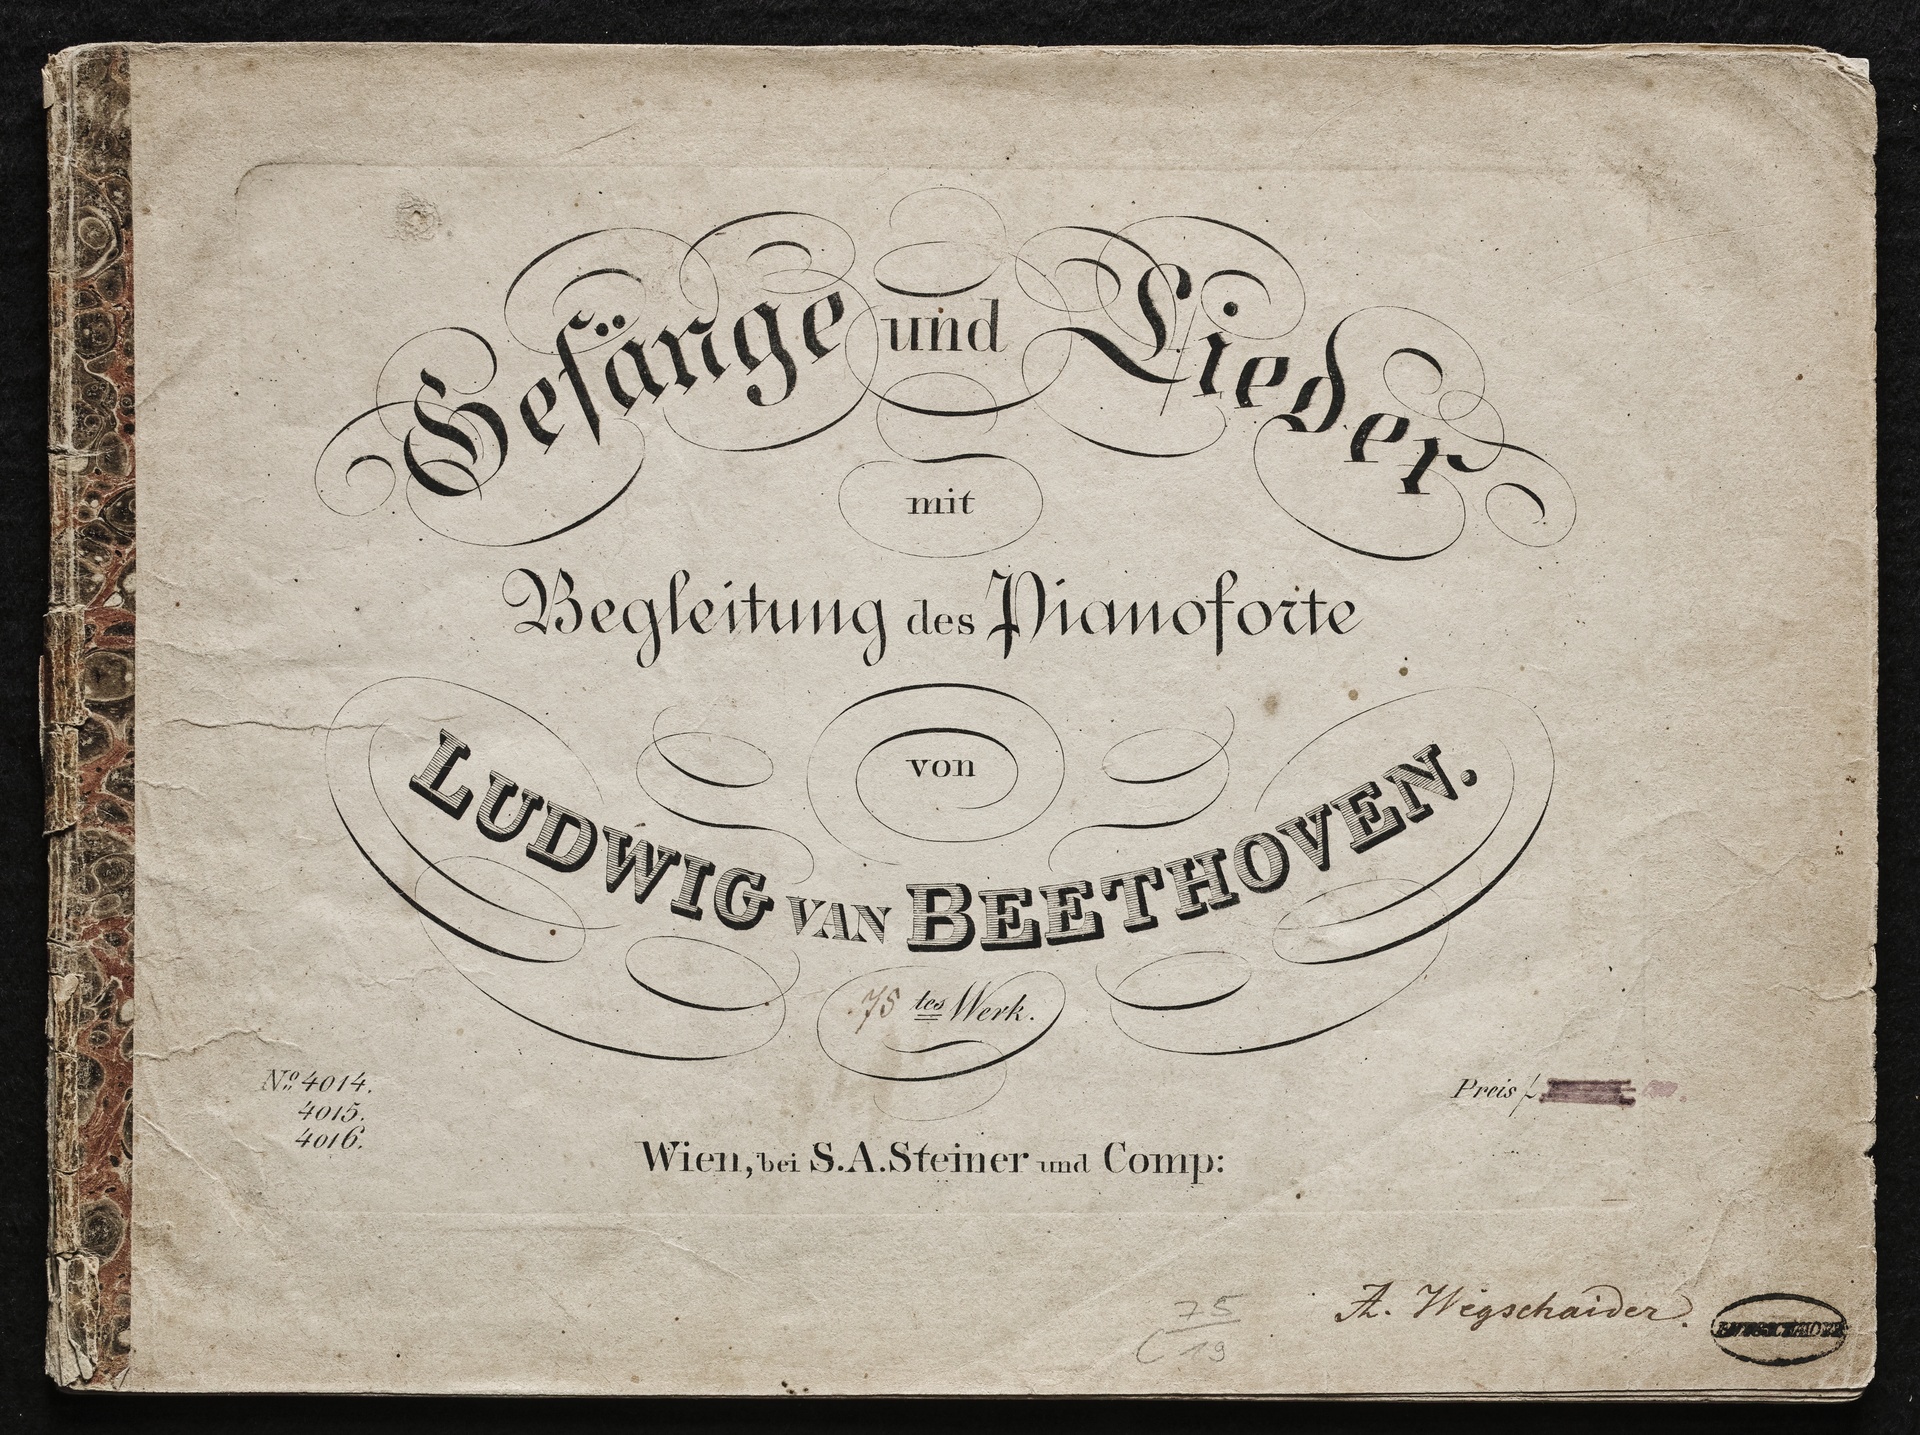 Gesänge und Lieder
mit
Begleitung des Pianoforte
von
LUDWIG VAN BEETHOVEN.
75 tes Werk.
No. 4014.
4015.
4016.
Preis f.
Wien, bei S.A. Steiner und Comp:
75
19
A. Wegschaider.